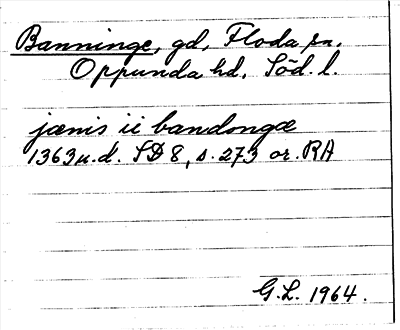 Banninge, gd, Floda sn.
Oppunda hd. Söd. l.
jænis ii bandongæ
1363 u.d. SD 8, s. 273 or. RA
G.L. 1964.